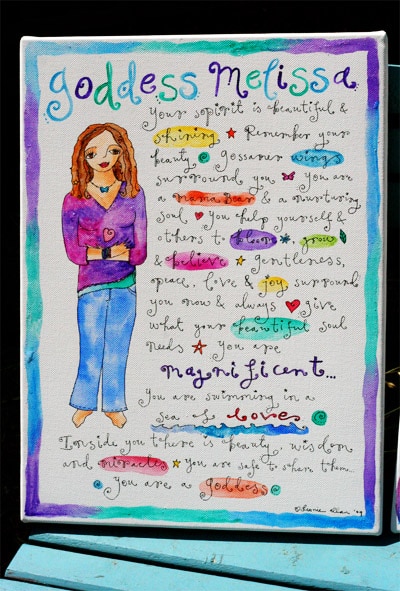 goddess Melissa
Your spirit is beautiful &
shining ★ Remember your
beauty gossamer wings
surround you you are
a mama bear & a nurturing
soul ♥ you help yourself &
others to bloom, grow
& believe ★ gentleness,
peace, love & joy surround
you now & always ♥ give
what your beautiful soul
needs ☆ you are
magnificent...
You are swimming in a
sea of love
Inside you there is beauty, wisdom
and miracles ★ you are safe to share them...
you are a goddess